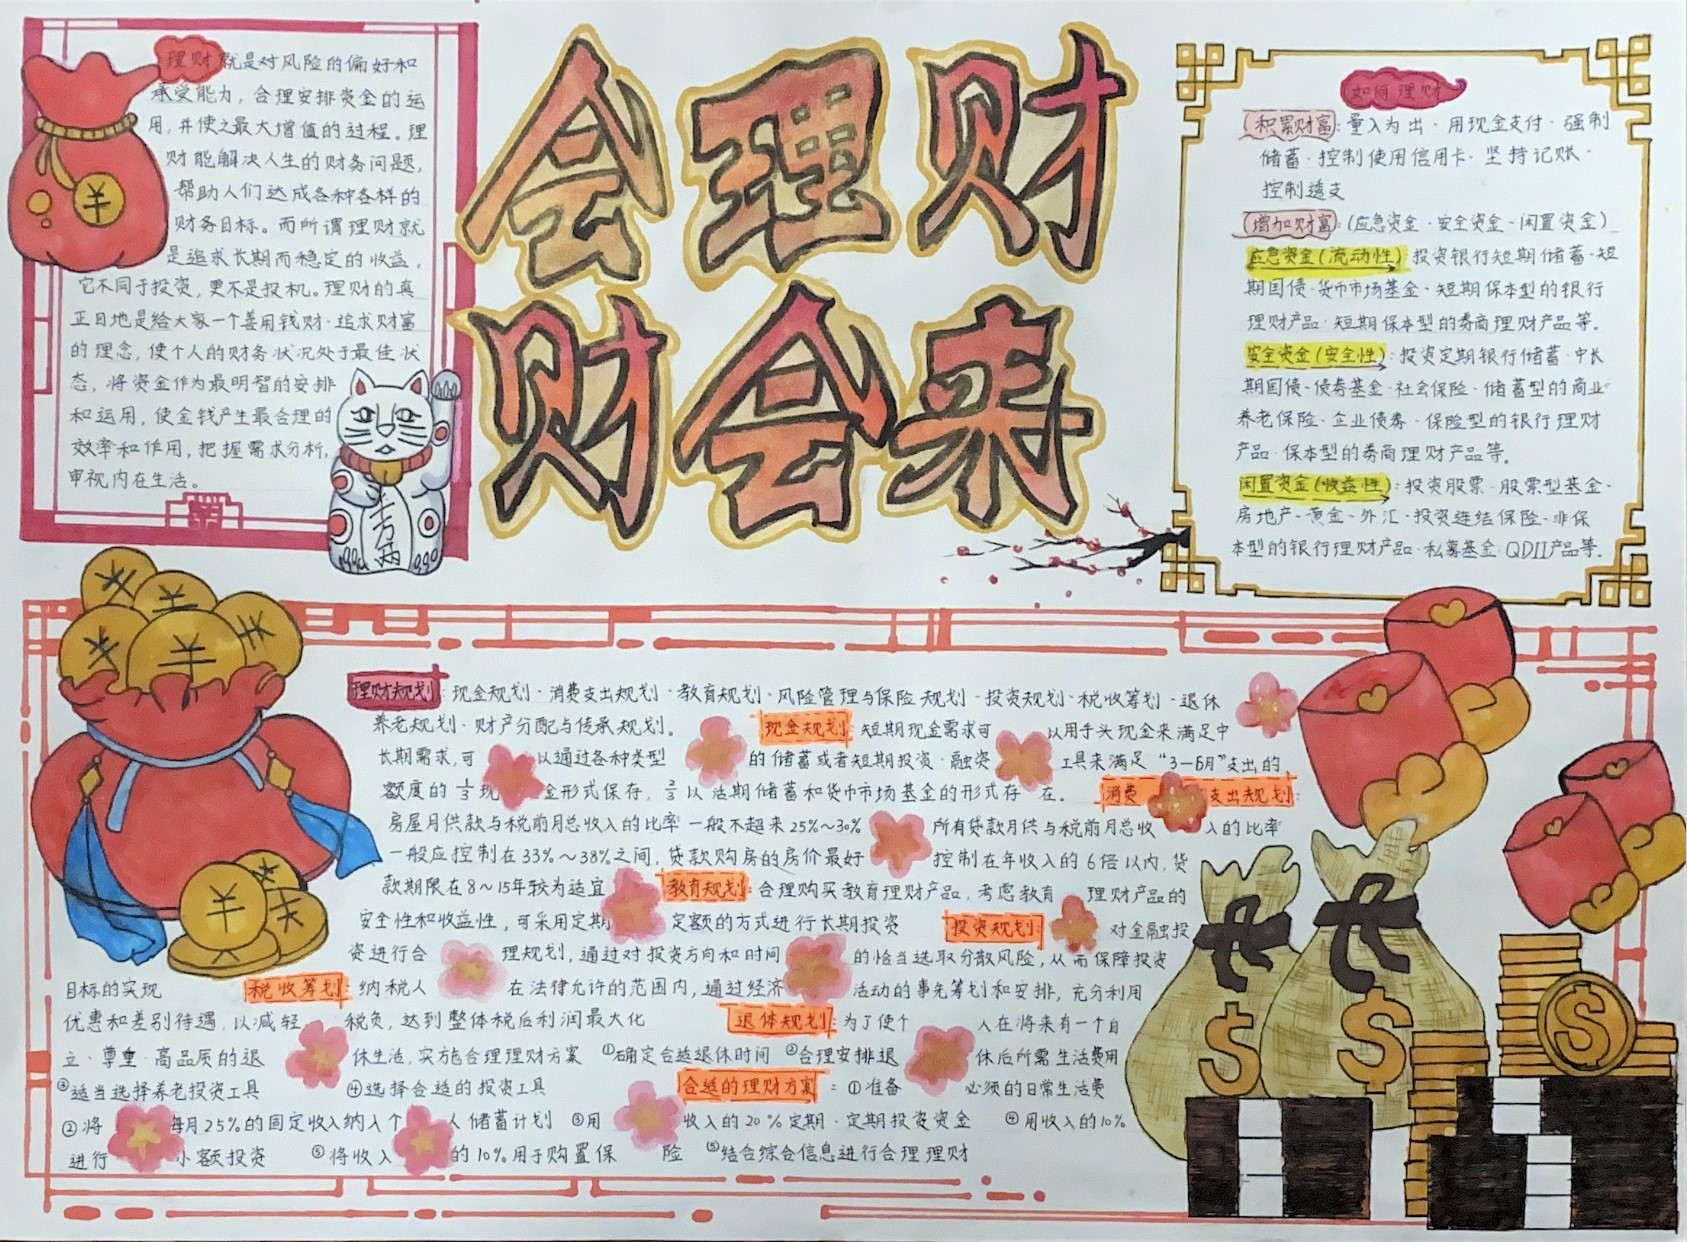 会理财
财会来
理财就是对风险的偏好和
承受能力，合理安排资金的运
用，并使之最大增值的过程。理
财能解决人生的财务问题，
帮助人们达成各种各样的
财务目标。而所谓理财就
是追求长期而稳定的收益，
它不同于投资，更不是投机。理财的真
正目地是给大家一个善用钱财·追求财富
的理念，使个人的财务状况处于最佳状
态，将资金作为最明智的安排
和运用，使金钱产生最合理的
效率和作用，把握需求分析，
审视内在生活。
千万两
如何理财
积累财富：量入为出·用现金支付·强制
储蓄·控制使用信用卡·坚持记账·
控制透支
增加财富：（应急资金·安全资金·闲置资金）
应急资金（流动性）：投资银行短期储蓄·短
期国债·货币市场基金·短期保本型的银行
理财产品·短期保本型的券商理财产品等。
安全资金（安全性）：投资定期银行储蓄·中长
期国债·债券基金·社会保险·储蓄型的商业
养老保险·企业债券·保险型的银行理财
产品·保本型的券商理财产品等。
闲置资金（收益性）：投资股票·股票型基金·
房地产·黄金·外汇·投资连结保险·非保
本型的银行理财产品·私募基金·QDII产品等。
理财规划：现金规划·消费支出规划·教育规划·风险管理与保险规划·投资规划·税收筹划·退休
养老规划·财产分配与传承规划。 现金规划：短期现金需求可以用手头现金来满足中
长期需求，可以通过各种类型的储蓄或者短期投资·融资工具来满足“3—6月”支出的
额度的1/3现金形式保存，2/3以活期储蓄和货币市场基金的形式存在。 消费支出规划：
房屋月供款与税前月总收入的比率一般不超来25%～30% 所有贷款月供与税前月总收入的比率
一般应控制在33%～38%之间，贷款购房的房价最好控制在年收入的6倍以内，贷
款期限在8～15年较为适宜 教育规划：合理购买教育理财产品，考虑教育理财产品的
安全性和收益性，可采用定期定额的方式进行长期投资 投资规划：对金融投
资进行合理规划，通过对投资方向和时间的恰当选取分散风险，从而保障投资
目标的实现 税收筹划：纳税人在法律允许的范围内，通过经济活动的事先筹划和安排，充分利用
优惠和差别待遇，以减轻税负，达到整体税后利润最大化 退休规划：为了使个人在将来有一个自
立·尊重·高品质的退休生活，实施合理理财方案 ①确定合适退休时间 ②合理安排退休后所需生活费用
③适当选择养老投资工具 ④选择合适的投资工具 合适的理财方案：①准备必须的日常生活费
②将每月25%的固定收入纳入个人储蓄计划 ③用收入的20%定期·定期投资资金 ④用收入的10%
进行小额投资 ⑤将收入的10%用于购置保险 ⑤结合综合信息进行合理理财